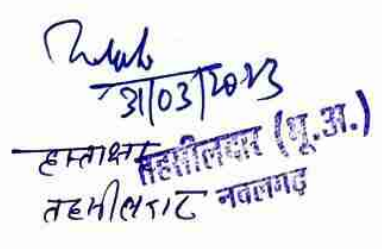 31/03/2023
हस्ताक्षर
तहसीलदार (भू.अ.)
तहसीलदार नवलगढ़